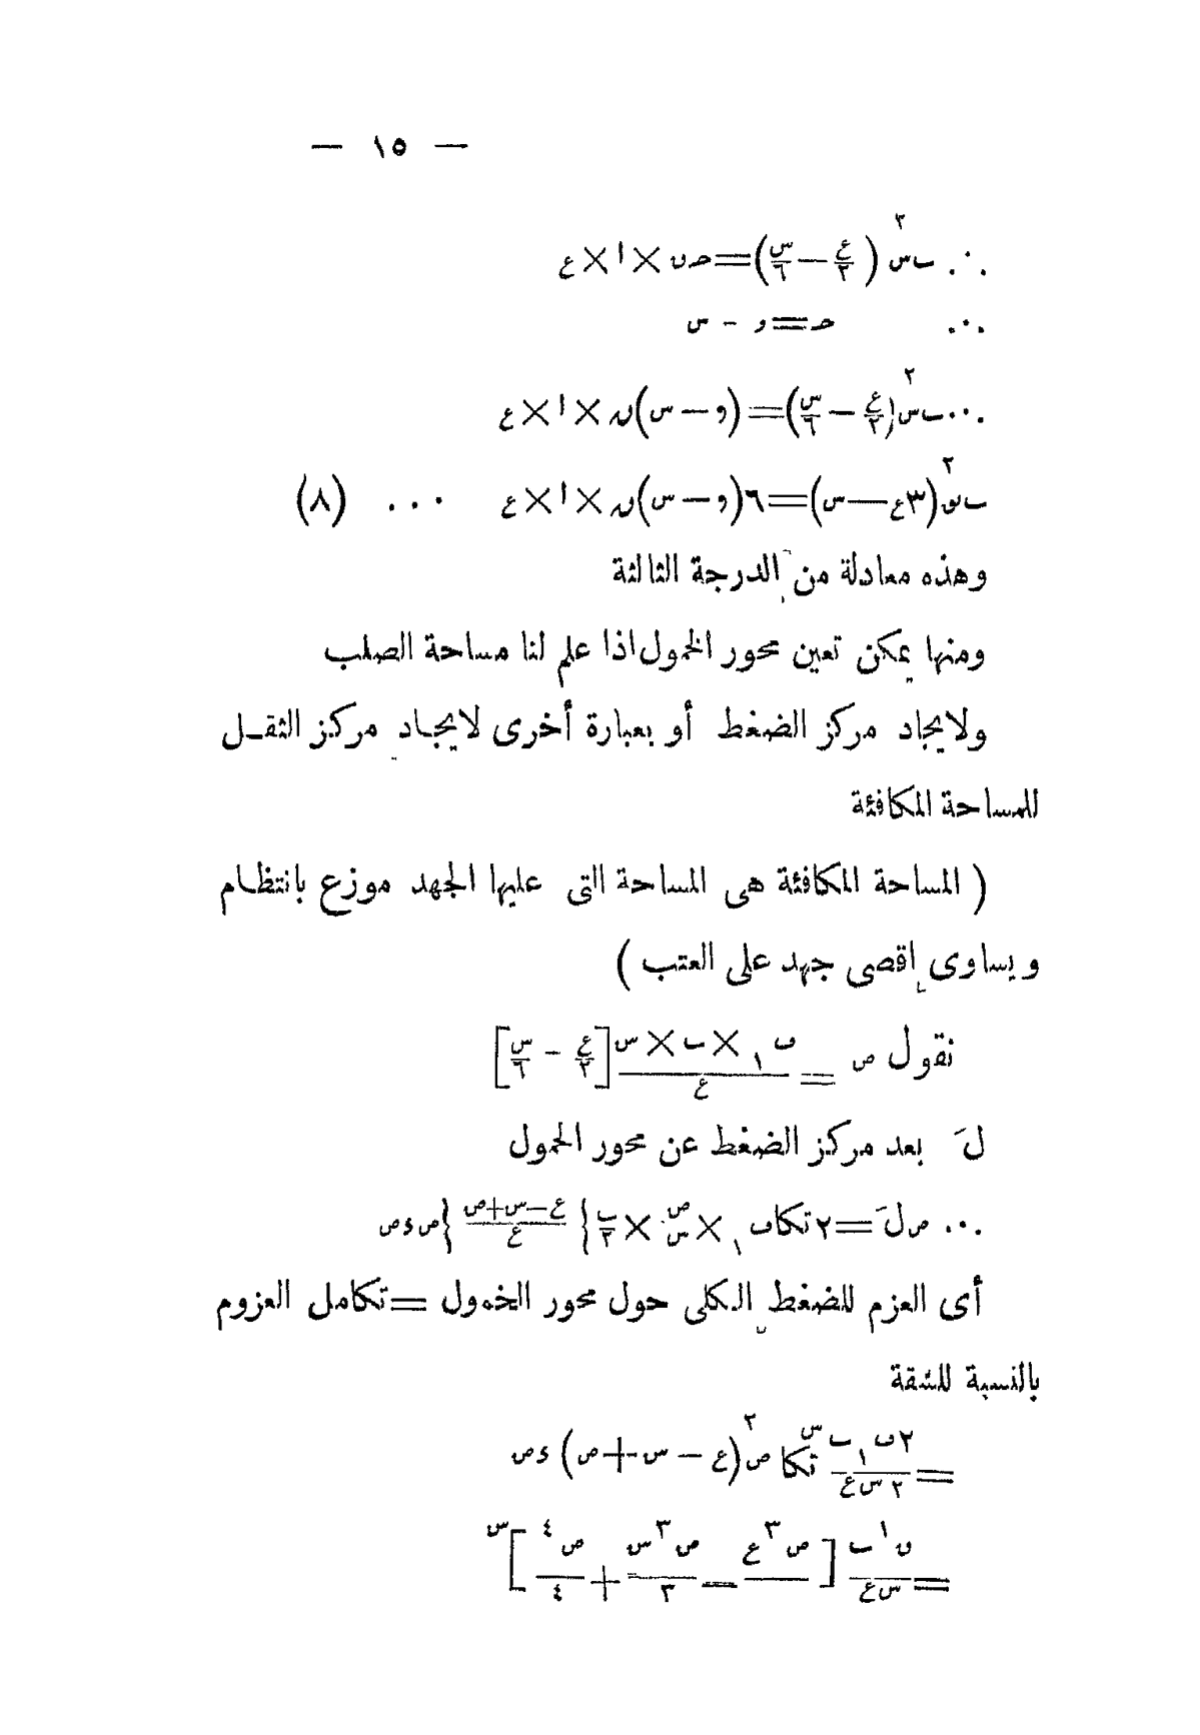 — ١٥ —
∴ ب س٢ (ع/٢ − س/٦) = حـ ن × ا × ع
∵ حـ = و - س
∴ ب س٢ (ع/٢ − س/٦) = (و − س) ن × ا × ع
ب س٢ (٣ع − س) = ٦(و − س) ن × ا × ع ... (٨)
وهذه معادلة من الدرجة الثالثة
ومنها يمكن تعين محور الخمول اذا علم لنا مساحة الصلب
ولايجاد مركز الضغط أو بعبارة أخرى لايجاد مركز الثقل
للمساحة المكافئة
( المساحة المكافئة هى المساحة التى عليها الجهد موزع بانتظام
ويساوى اقصى جهد على العتب )
نقول ص = ف١ × ب × س/ع [ع/٢ - س/٦]
لَ بعد مركز الضغط عن محور الحمول
∴ ص لَ = ٢ تكا ف١ × ص/س × ب/٢ {ع−س+ص/ع} ص ء ص
أى العزم للضغط الكلى حول محور الخمول = تكامل العزوم
بالنسبة للشقة
= ٢ف١ ب/٢ س ع تكا س ص٢ (ع − س + ص) ء ص
= ف١ ب/س ع [ص٣ ع/ − ص٣ س/٣ + ص٤/٤] س